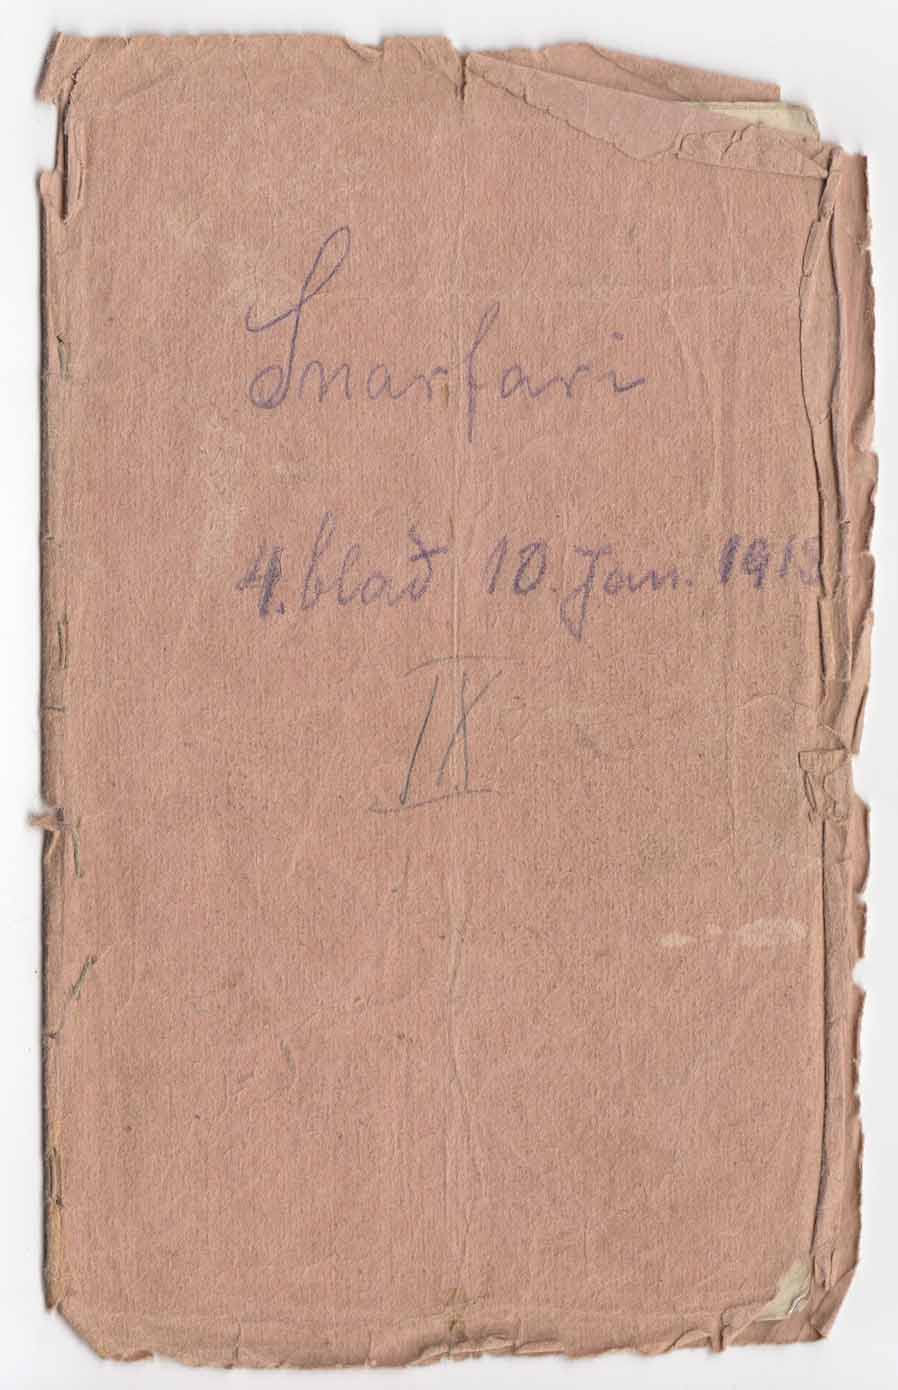 Snarfari
4. blað 10. Jan. 1913
IX